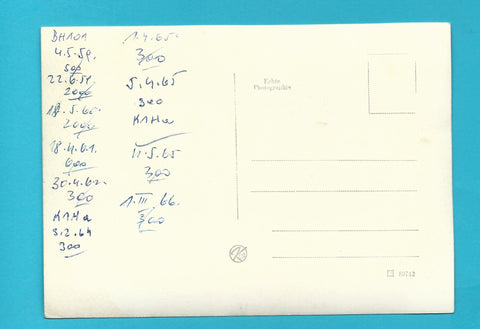 BH101
4.5.59.
500
22.6.59.
2000
18.5.60.
2000
18.4.61.
600
30.4.62.
300
K1Ha
3.2.64
300
1.4.65.
300
5.4.65
300
K1Ha
11.5.65
300
1.III.66.
300
Echte
Photographie